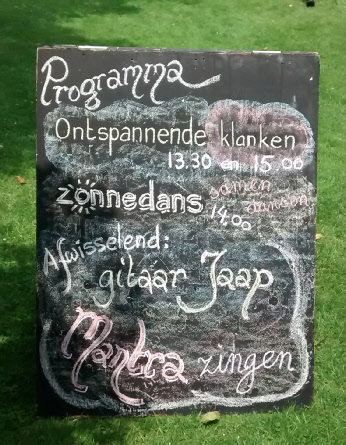 Programma
Ontspannende klanken
13.30 en 15.00
zonnedans samen dansen
14.00
Afwisselend:
gitaar Jaap
Mantra zingen